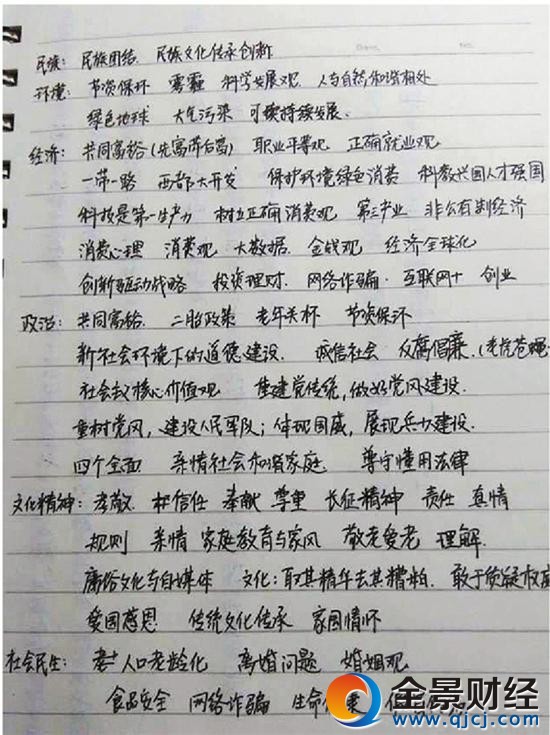 民族：民族团结　民族文化传承创新
环境：节资保环　雾霾　科学发展观　人与自然和谐相处
绿色地球　大气污染　可续持续发展.
经济：共同富裕(先富带后富)　职业平等观　正确就业观
一带一路　西部大开发　保护环境绿色消费　科教兴国人才强国
科技是第一生产力　树立正确消费观　第三产业　非公有制经济
消费心理　消费观　大数据　金钱观　经济全球化
创新驱动战略　投资理财.　网络诈骗.　互联网+　创业
政治：共同富裕.　二胎政策　老年关怀　节资保环
新社会环境下的道德建设.　诚信社会　反腐倡廉.(老虎苍蝇
社会主义核心价值观　重建党传统,做好党风建设.
重树党风,建设人民军队;体现国威,展现兵力建设.
四个全面　亲情社会和谐家庭　尊守懂用法律
文化精神：孝敬.　信任　奉献　尊重　长征精神　责任　真情
规则　亲情　家庭教育与家风　敬老爱老　理解.
庸俗文化与自媒体　文化:取其精华去其糟粕.　敢于质疑权
爱国感恩　传统文化传承　家国情怀
社会民生：人口老龄化　离婚问题　婚姻观
食品安全　网络诈骗　生命
金景财经
www.qjcj.com